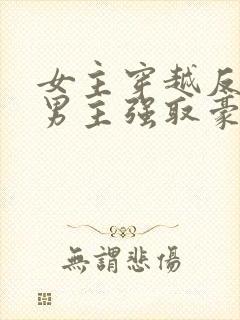 女主穿越反
男主强取豪
無謂悲傷